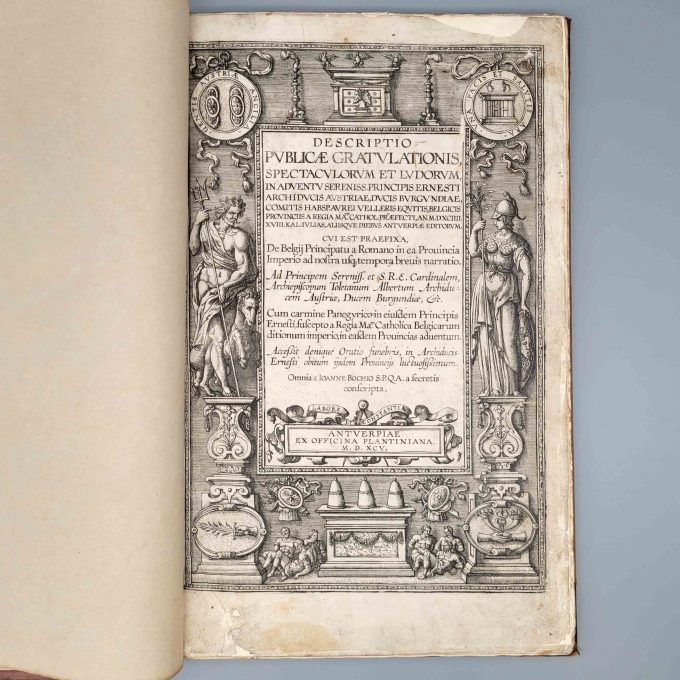 GENTIS AVSTRIA ANCILIA
PACIS ET BELLI
DESCRIPTIO
PVBLICÆ GRATVLATIONIS,
SPECTACVLORVM ET LVDORVM,
IN ADVENTV SERENISS. PRINCIPIS ERNESTI
ARCHIDVCIS AVSTRIAE, DVCIS BVRGVNDIAE,
COMITIS HABSP. AVREI VELLERIS EQVITIS, BELGICIS
PROVINCIIS A REGIA MA.TE CATHOL. PRÆFECTI, AN. M.D.XCIIII.
XVIII. KAL. IVLIAS, ALIISQVE DIEBVS ANTVERPIAE EDITORVM.
CVI EST PRAEFIXA,
De Belgij Principatu a Romano in ea Prouincia
Imperio ad nostra usq. tempora breuis narratio.
Ad Principem Sereniss. et S.R.E. Cardinalem,
Archiepiscopum Toletanum Albertum Archidu-
cem Austriæ, Ducem Burgundiæ, &c.
Cum carmine Panegyrico in eiusdem Principis
Ernesti, suscepto a Regia Ma.te Catholica Belgicarum
ditionum imperio, in easdem Prouincias aduentum.
Accessit denique Oratio funebris, in Archiducis
Ernesti obitum ijsdem Prouincijs luctuosissimum.
Omnia a IOANNE BOCHIO S.P.Q.A. a secretis
conscripta.
LABORE CONSTANTIA
ANTVERPIAE
EX OFFICINA PLANTINIANA.
M. D. XCV.